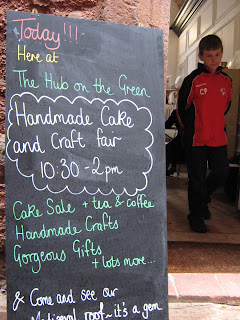 Today!!!
Here at
The Hub on the Green
Handmade Cake
and Craft fair
10:30 - 2pm
Cake Sale + tea & coffee
Handmade Crafts
Gorgeous Gifts
+ lots more...
& Come and see our
Medieval roof ~ it's a gem
CP